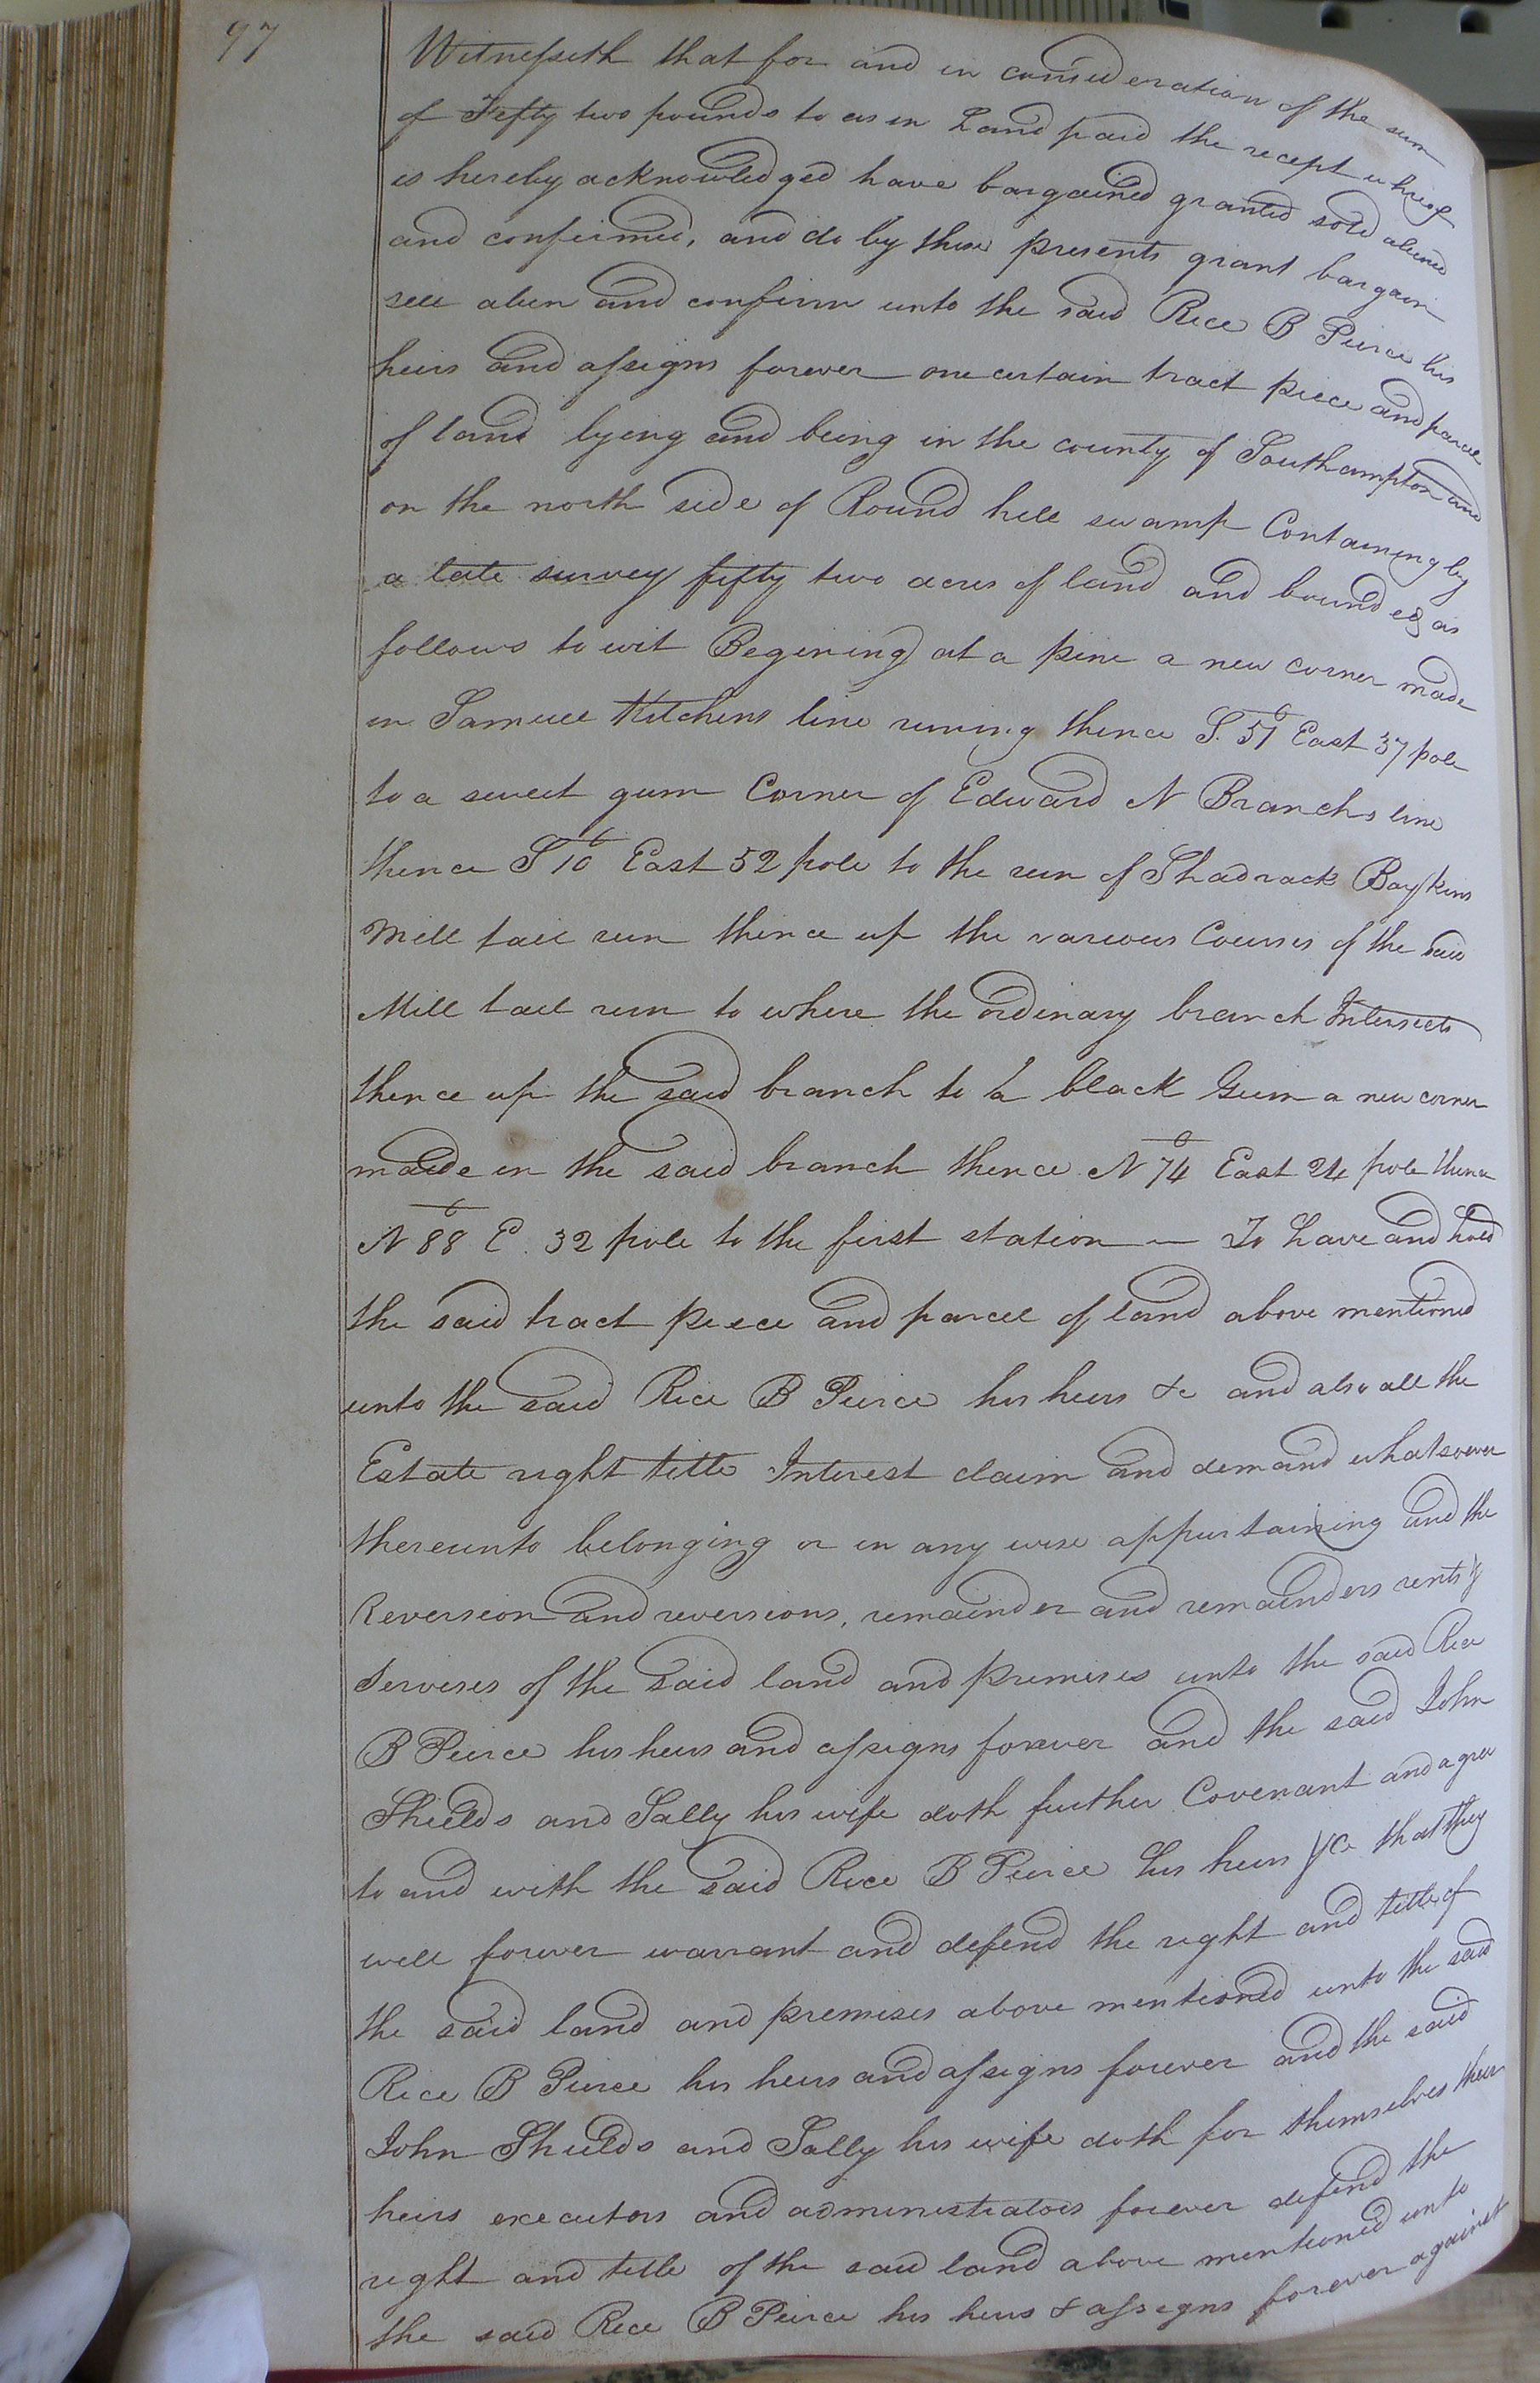 97
Witnesseth that for and in consideration of the sum
of Fifty two pounds to us in Hand paid the recept whreof
is hereby acknowledged have bargained granted sold aliened
and confirmed, and do by these presents grant bargain
sell alien and confirm unto the said Rice B Peirce his
heirs and assigns forever one certain tract piece and parcel
of land lying and being in the county of Southampton and
on the north side of Round hill swamp Containing by
a late survey fifty two acres of land and bounded as
follows to wit Begining at a pine a new corner made
in Samuel Kitchens line runing thence S. 51° East 37 pole
to a sweet gum Corner of Edward N Branchs line
thence S 10° East 52 pole to the run of Shadrack Baykins
Mill tail run thence up the various Courses of the said
Mill tail run to where the ordinary branch Intersects
thence up the said branch to a black Gum a new corner
made in the said branch thence N 74° East 24 pole thence
N 88° E. 32 pole to the first station — To have and hold
the said tract peece and parcel of land above mentioned
unto the said Rice B Peirce his heirs &c and also all the
Estate right title Interest claim and demand whatsoever
thereunto belonging or in any wise appurtaining and the
Reversion and reversions, remainder and remainders rents &
Serveses of the said land and premises unto the said Rice
B Peirce his heirs and assigns forever and the said John
Shields and Sally his wife doth further Covenant and agree
to and with the said Rice B Peirce his heirs &c that they
will forever warrant and defend the right and title of
the said land and premises above mentioned unto the said
Rice B Peirce his heirs and assigns forever and the said
John Shields and Sally his wife doth for themselves their
heirs executors and administrators forever defend the
right and title of the said land above mentioned unto
the said Rice B Peirce his heirs & assigns forever against